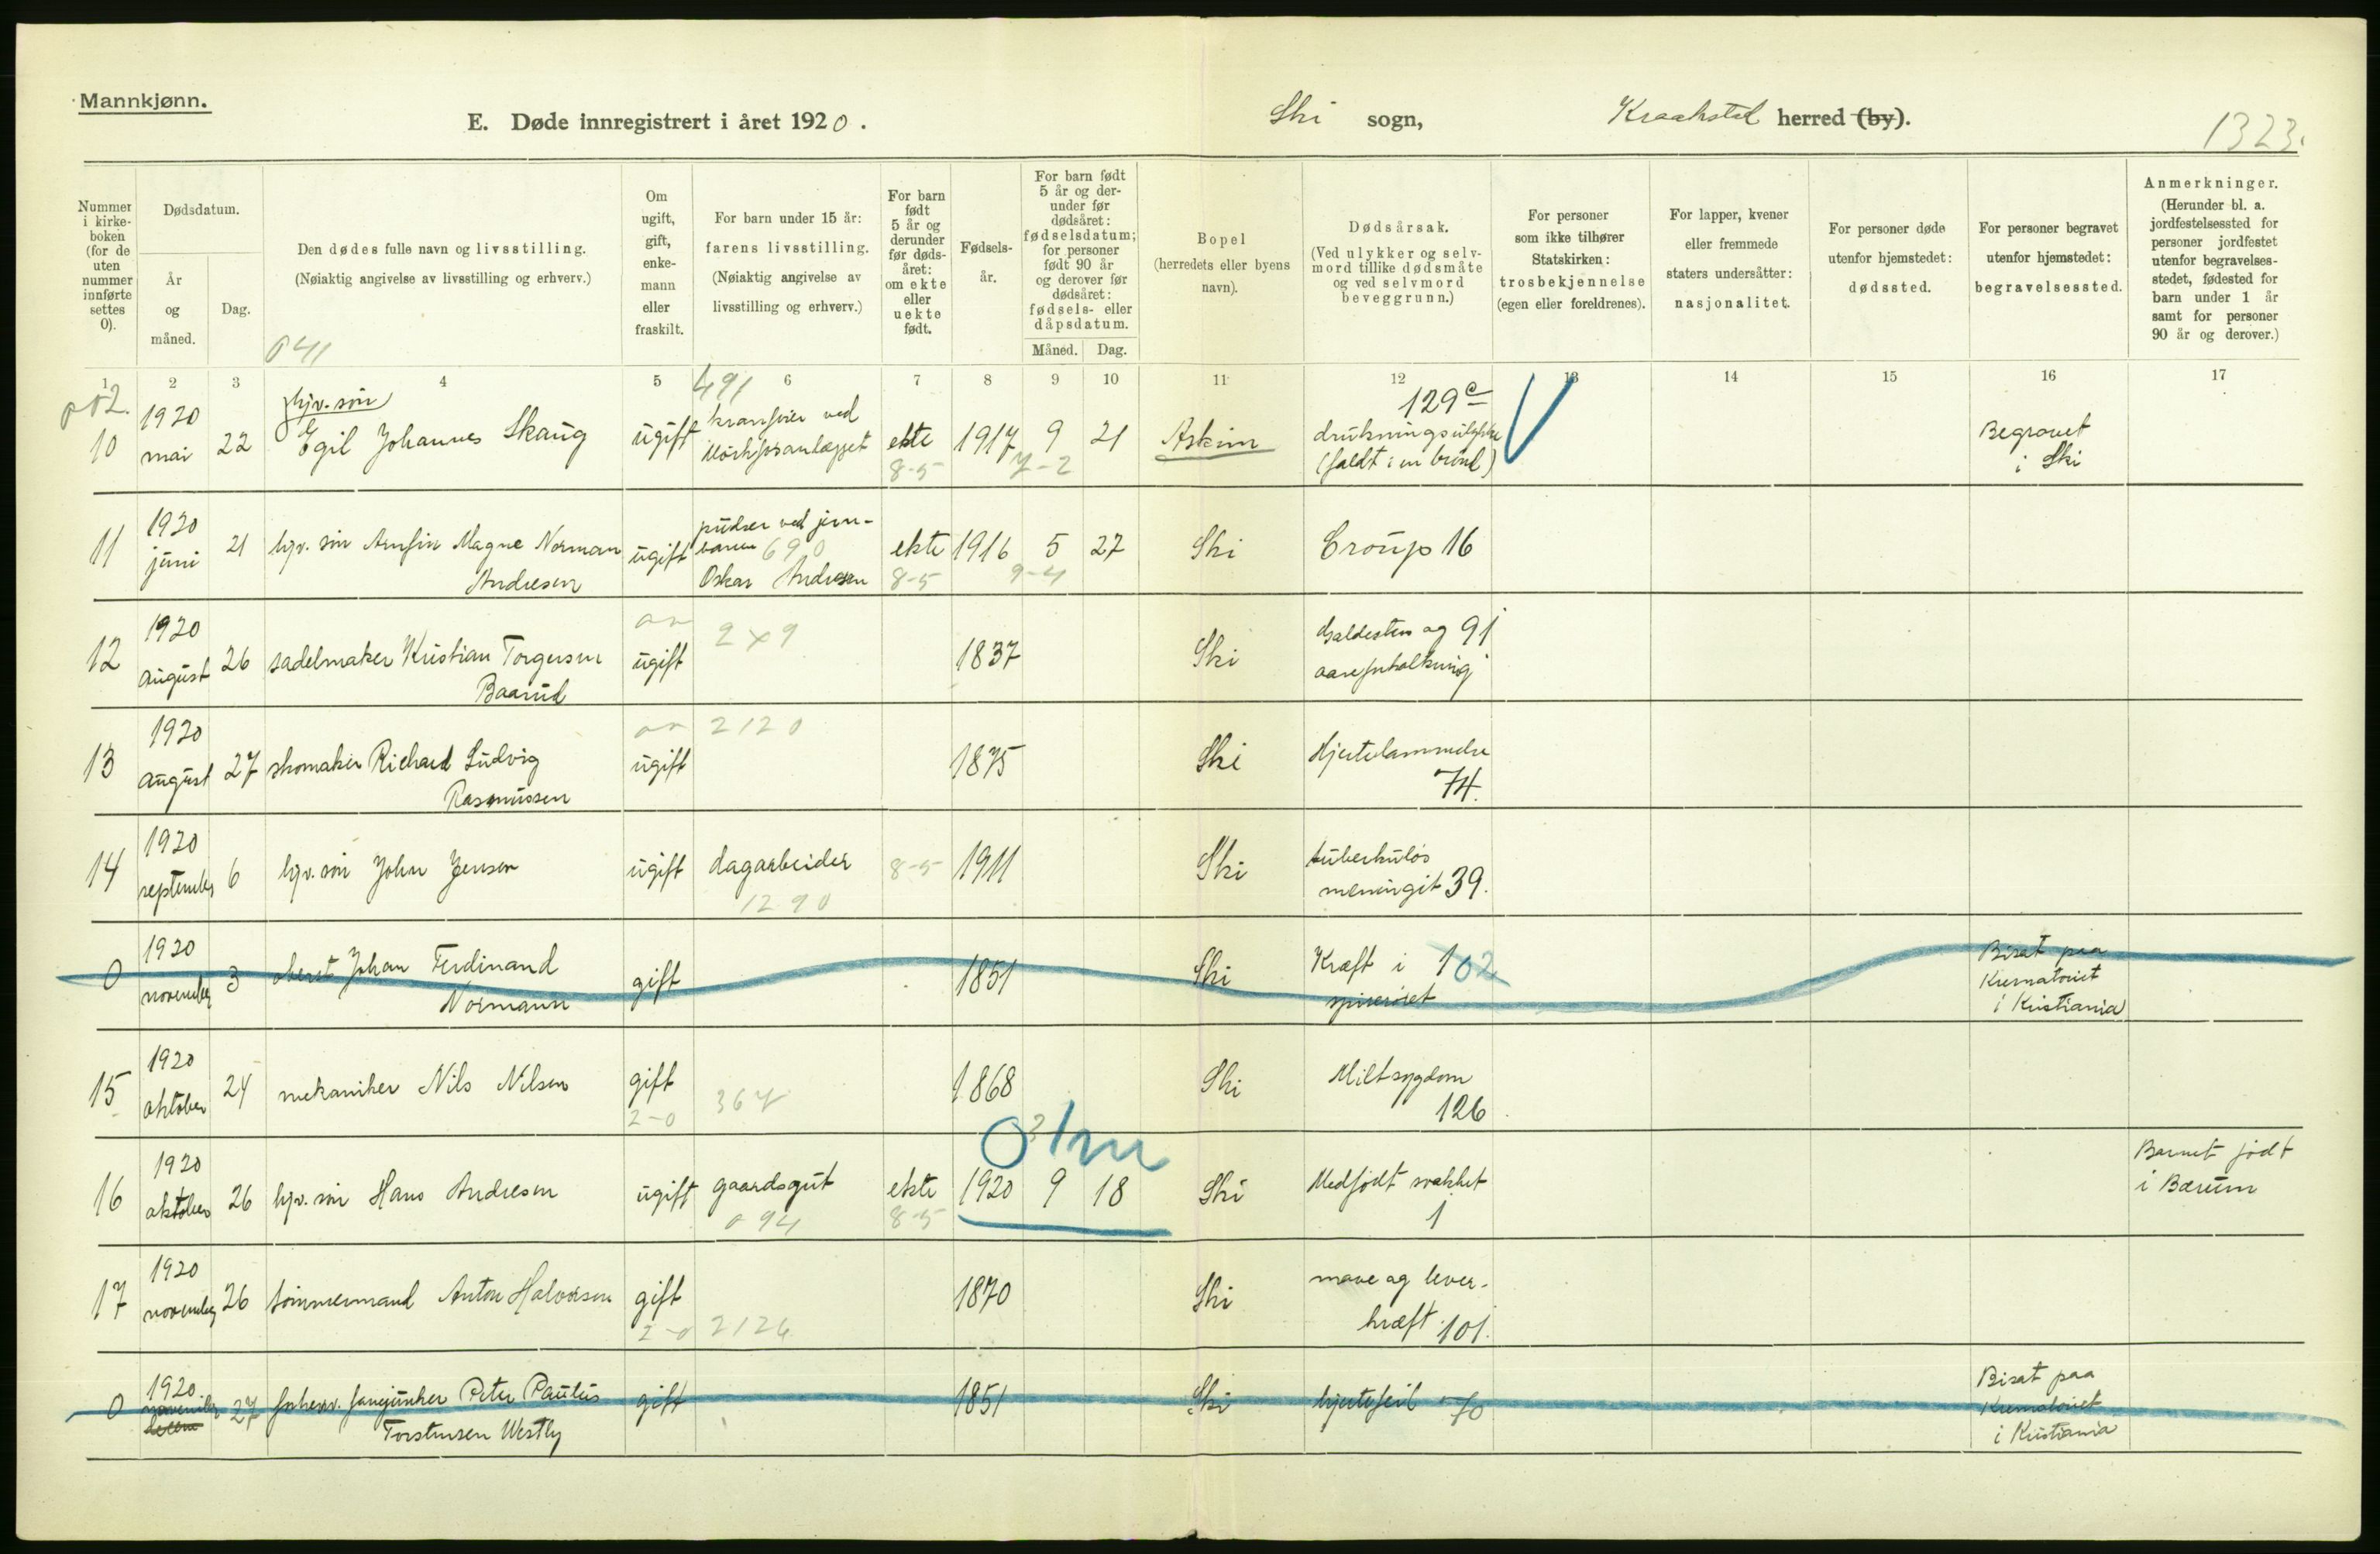 Mannkjønn.
E. Døde innregistrert i året 1920.
Ski sogn,
Kraakstad herred (by).
1323.
Nummer
i kirke-
boken
(for de
uten
nummer
innførte
settes
0).
Dødsdatum.
År
og
måned.
Dag.
Den dødes fulle navn og livsstilling.
(Nøiaktig angivelse av livsstilling og erhverv.)
041
Om
ugift,
gift,
enke-
mann
eller
fraskilt.
For barn under 15 år:
farens livsstilling.
(Nøiaktig angivelse av
livsstilling og erhverv.)
For barn
født
5 år og
derunder
før døds-
året:
om ekte
eller
uekte
født.
Fødsels-
år.
For barn født
5 år og der-
under før
dødsåret:
fødselsdatum;
for personer
født 90 år
og derover før
dødsåret:
fødsels- eller
dåpsdatum.
Måned. Dag.
Bopel
(herredets eller byens
navn).
Dødsårsak.
(Ved ulykker og selv-
mord tillike dødsmåte
og ved selvmord
beveggrunn.)
For personer
som ikke tilhører
Statskirken:
trosbekjennelse
(egen eller foreldrenes).
For lapper, kvener
eller fremmede
staters undersåtter:
nasjonalitet.
For personer døde
utenfor hjemstedet:
dødssted.
For personer begravet
utenfor hjemstedet:
begravelsessted.
Anmerkninger.
(Herunder bl. a.
jordfestelsessted for
personer jordfestet
utenfor begravelses-
stedet, fødested for
barn under 1 år
samt for personer
90 år og derover.)
1 2 3 4 5 6 7 8 9 10 11 12 13 14 15 16 17
012.
10
1920
mai
22
hjv. søn
Egil Johannes Skaug
ugift
491
ved
ekte
8-5
1917
9
21
7-2
Askim
129 c
drukningsulykke
(faldt i en brønd)
Begravet
i Ski
11
1920
juni
21
hjv. søn Arnfin Magne Norman
Andresen
ugift
pudser ved jern-
banen 690
Oskar Andresen
ekte
8-5
1916
5
27
9-4
Ski
Croup 16
12
1920
august
26
sadelmaker Kristian Torgersen
Baarud
ugift
1837
Ski
Galdesten og 91
aareforkalkning
13
1920
august
27
skomaker Richard Ludvig
Rasmussen
ugift
2120
1875
Ski
Hjertelammelse
74.
14
1920
september
6
hjv. søn John Jensen
ugift
dagarbeider
1290
8-5
1911
Ski
tuberkuløs
meningit 39.
0
1920
november
3
oberst Johan Ferdinand
Normann
gift
1851
Ski
Kræft i 102
spiserøret
Bisat paa
Krematoriet
i Kristiania
15
1920
oktober
24
mekaniker Nils Nilsen
gift
2-0
367
1868
Ski
Miltsygdom
126
16
1920
oktober
26
hjv. søn Hans Andresen
ugift
gaardsgut
094
ekte
8-5
1920
9
18
Ski
Medfødt svakhet
1
Barnet født
i Bærum
17
1920
november
26
tømmermand Anton Halvorsen
gift
2-0
2126
1870
Ski
mave og lever-
kræft 101.
0
1920
november
27
fanejunker Peter Paulus
Torstensen Westly
gift
1851
Ski
hjertefeil 70
Bisat paa
Krematoriet
i Kristiania